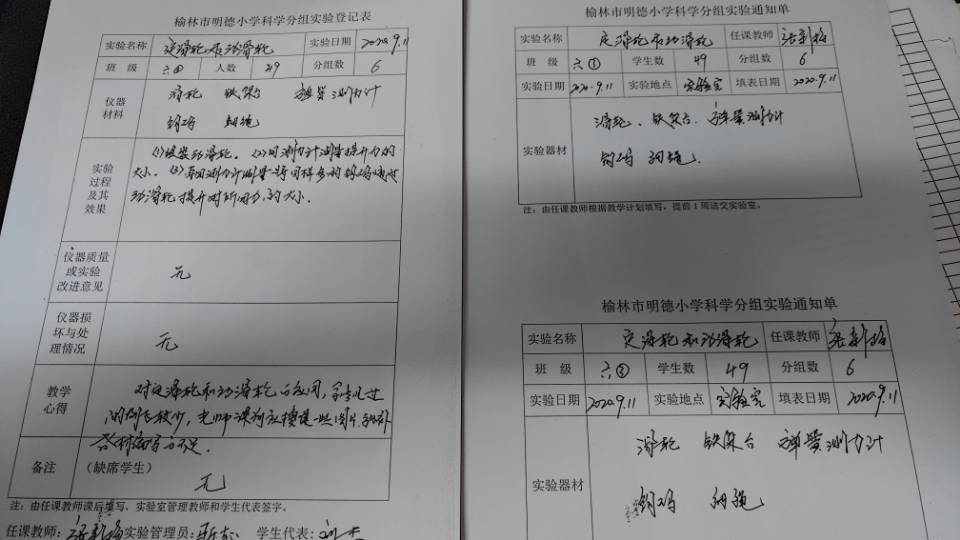 榆林市明德小学科学分组实验登记表
实验名称 定滑轮和动滑轮 实验日期 2020.9.11
班 级 六① 人数 49 分组数 6
仪器材料
滑轮 铁架台 弹簧测力计
钩码 细绳
实验过程及其效果
(1)组装动滑轮。(2)用测力计测量提升力的
大小。(3)再用测力计测量将同样多的钩码通过
动滑轮提升时所用力的大小。
仪器质量或实验改进意见
无
仪器损坏与处理情况
无
教学心得
对定滑轮和动滑轮的应用,学生见过
的例子较少,老师课前应搜集一些图片
备注 (缺席学生)
无
注:由任课教师课后填写、实验室管理教师和学生代表签字。
任课教师: 实验管理员: 学生代表:
榆林市明德小学科学分组实验通知单
实验名称 定滑轮和动滑轮 任课教师
班 级 六① 学生数 49 分组数 6
实验日期 2020.9.11 实验地点 实验室 填表日期 2020.9.11
实验器材
滑轮、铁架台、弹簧测力计
钩码 细绳.
注:由任课教师根据教学计划填写,提前1周送交实验室。
榆林市明德小学科学分组实验通知单
实验名称 定滑轮和动滑轮 任课教师
班 级 六② 学生数 49 分组数 6
实验日期 2020.9.11 实验地点 实验室 填表日期 2020.9.11
实验器材
滑轮 铁架台 弹簧测力计
钩码 细绳